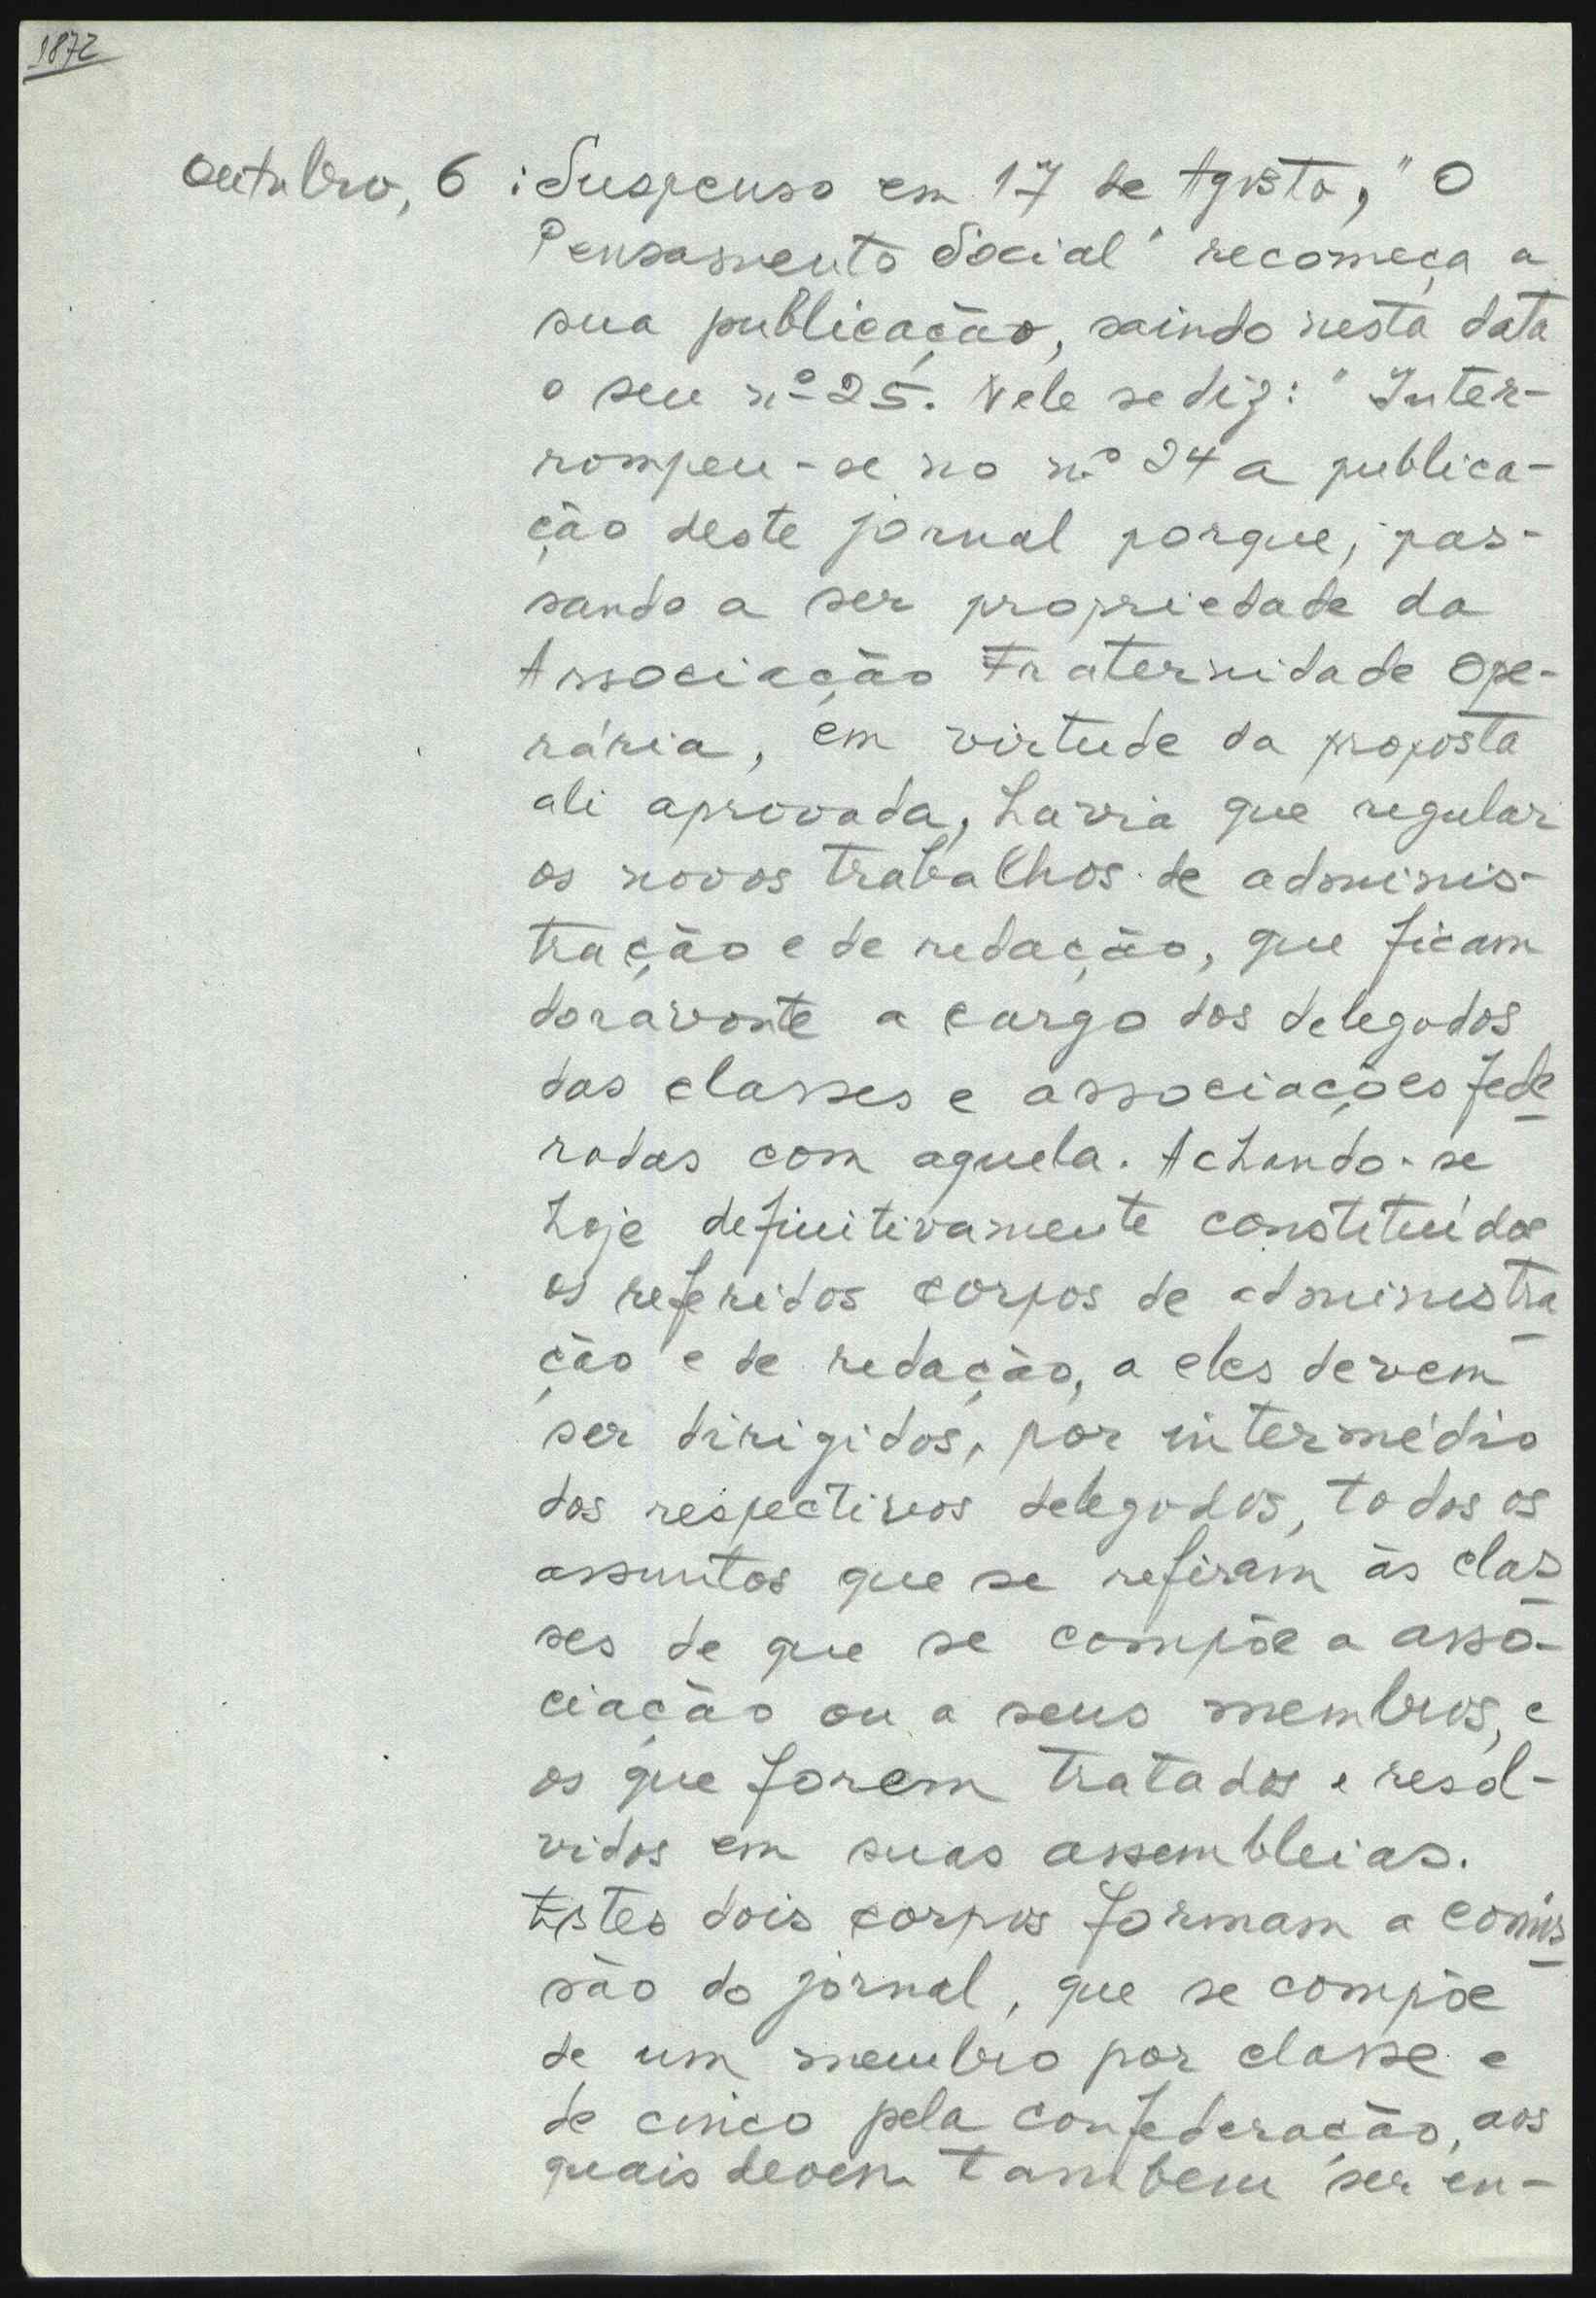 1872
Outubro, 6 : Suspenso em 17 de Agosto, "O
Pensamento Social" recomeça a
sua publicação, saindo nesta data
o seu nº 25. Nele se diz: "Inter-
rompeu-se no nº 24 a publica-
ção deste jornal porque, pas-
sando a ser propriedade da
Associação Fraternidade Ope-
rária, em virtude da proposta
ali aprovada, havia que regular
os novos trabalhos de adminis-
tração e de redação, que ficam
doravante a cargo dos delegados
das classes e associações fede
radas com aquela. Achando-se
hoje definitivamente constituídos
os referidos corpos de administra
ção e de redação, a eles devem
ser dirigidos, por intermédio
dos respectivos delegados, todos os
assuntos que se refiram às clas
ses de que se compõe a asso-
ciação ou a seus membros, e
os que forem tratados e resol-
vidos em suas assembleias.
Estes dois corpos formam a comis
são do jornal, que se compõe
de um membro por classe e
de cinco pela confederação, aos
quais devem tambem ser en-